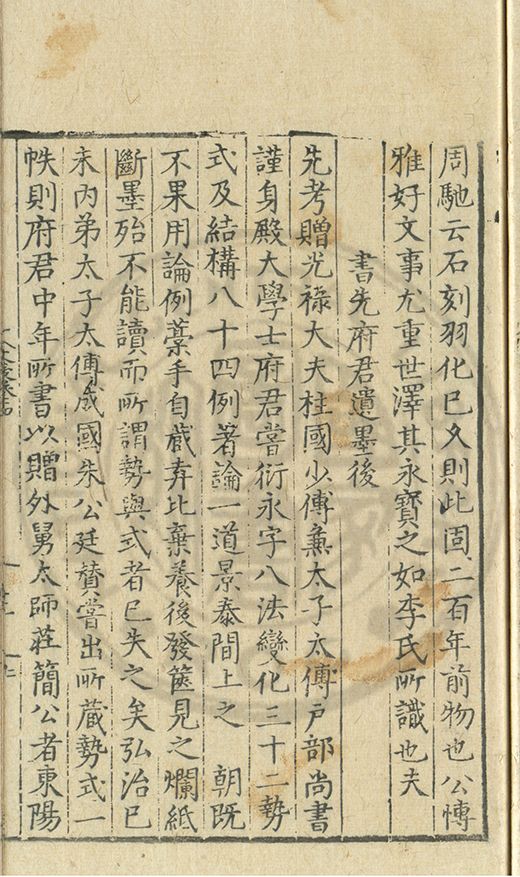 周馳云石刻羽化已久則此固二百年前物也公愽
雅好文事尤重世澤其永寶之如李氏所識也夫
書先府君遺墨後
先考贈光祿大夫柱國少傅兼太子太傅戶部尚書
謹身殿大學士府君嘗衍永字八法變化三十二勢
式及結構八十四例著論一道景泰間上之 朝既
不果用論例藁手自蔵弆比棄養後發篋見之爛紙
斷墨殆不能讀而所謂勢與式者已失之矣弘治已
未內弟太子太傅成國朱公廷贊嘗出所蔵勢式一
帙則府君中年所書以贈外舅太師莊簡公者東陽